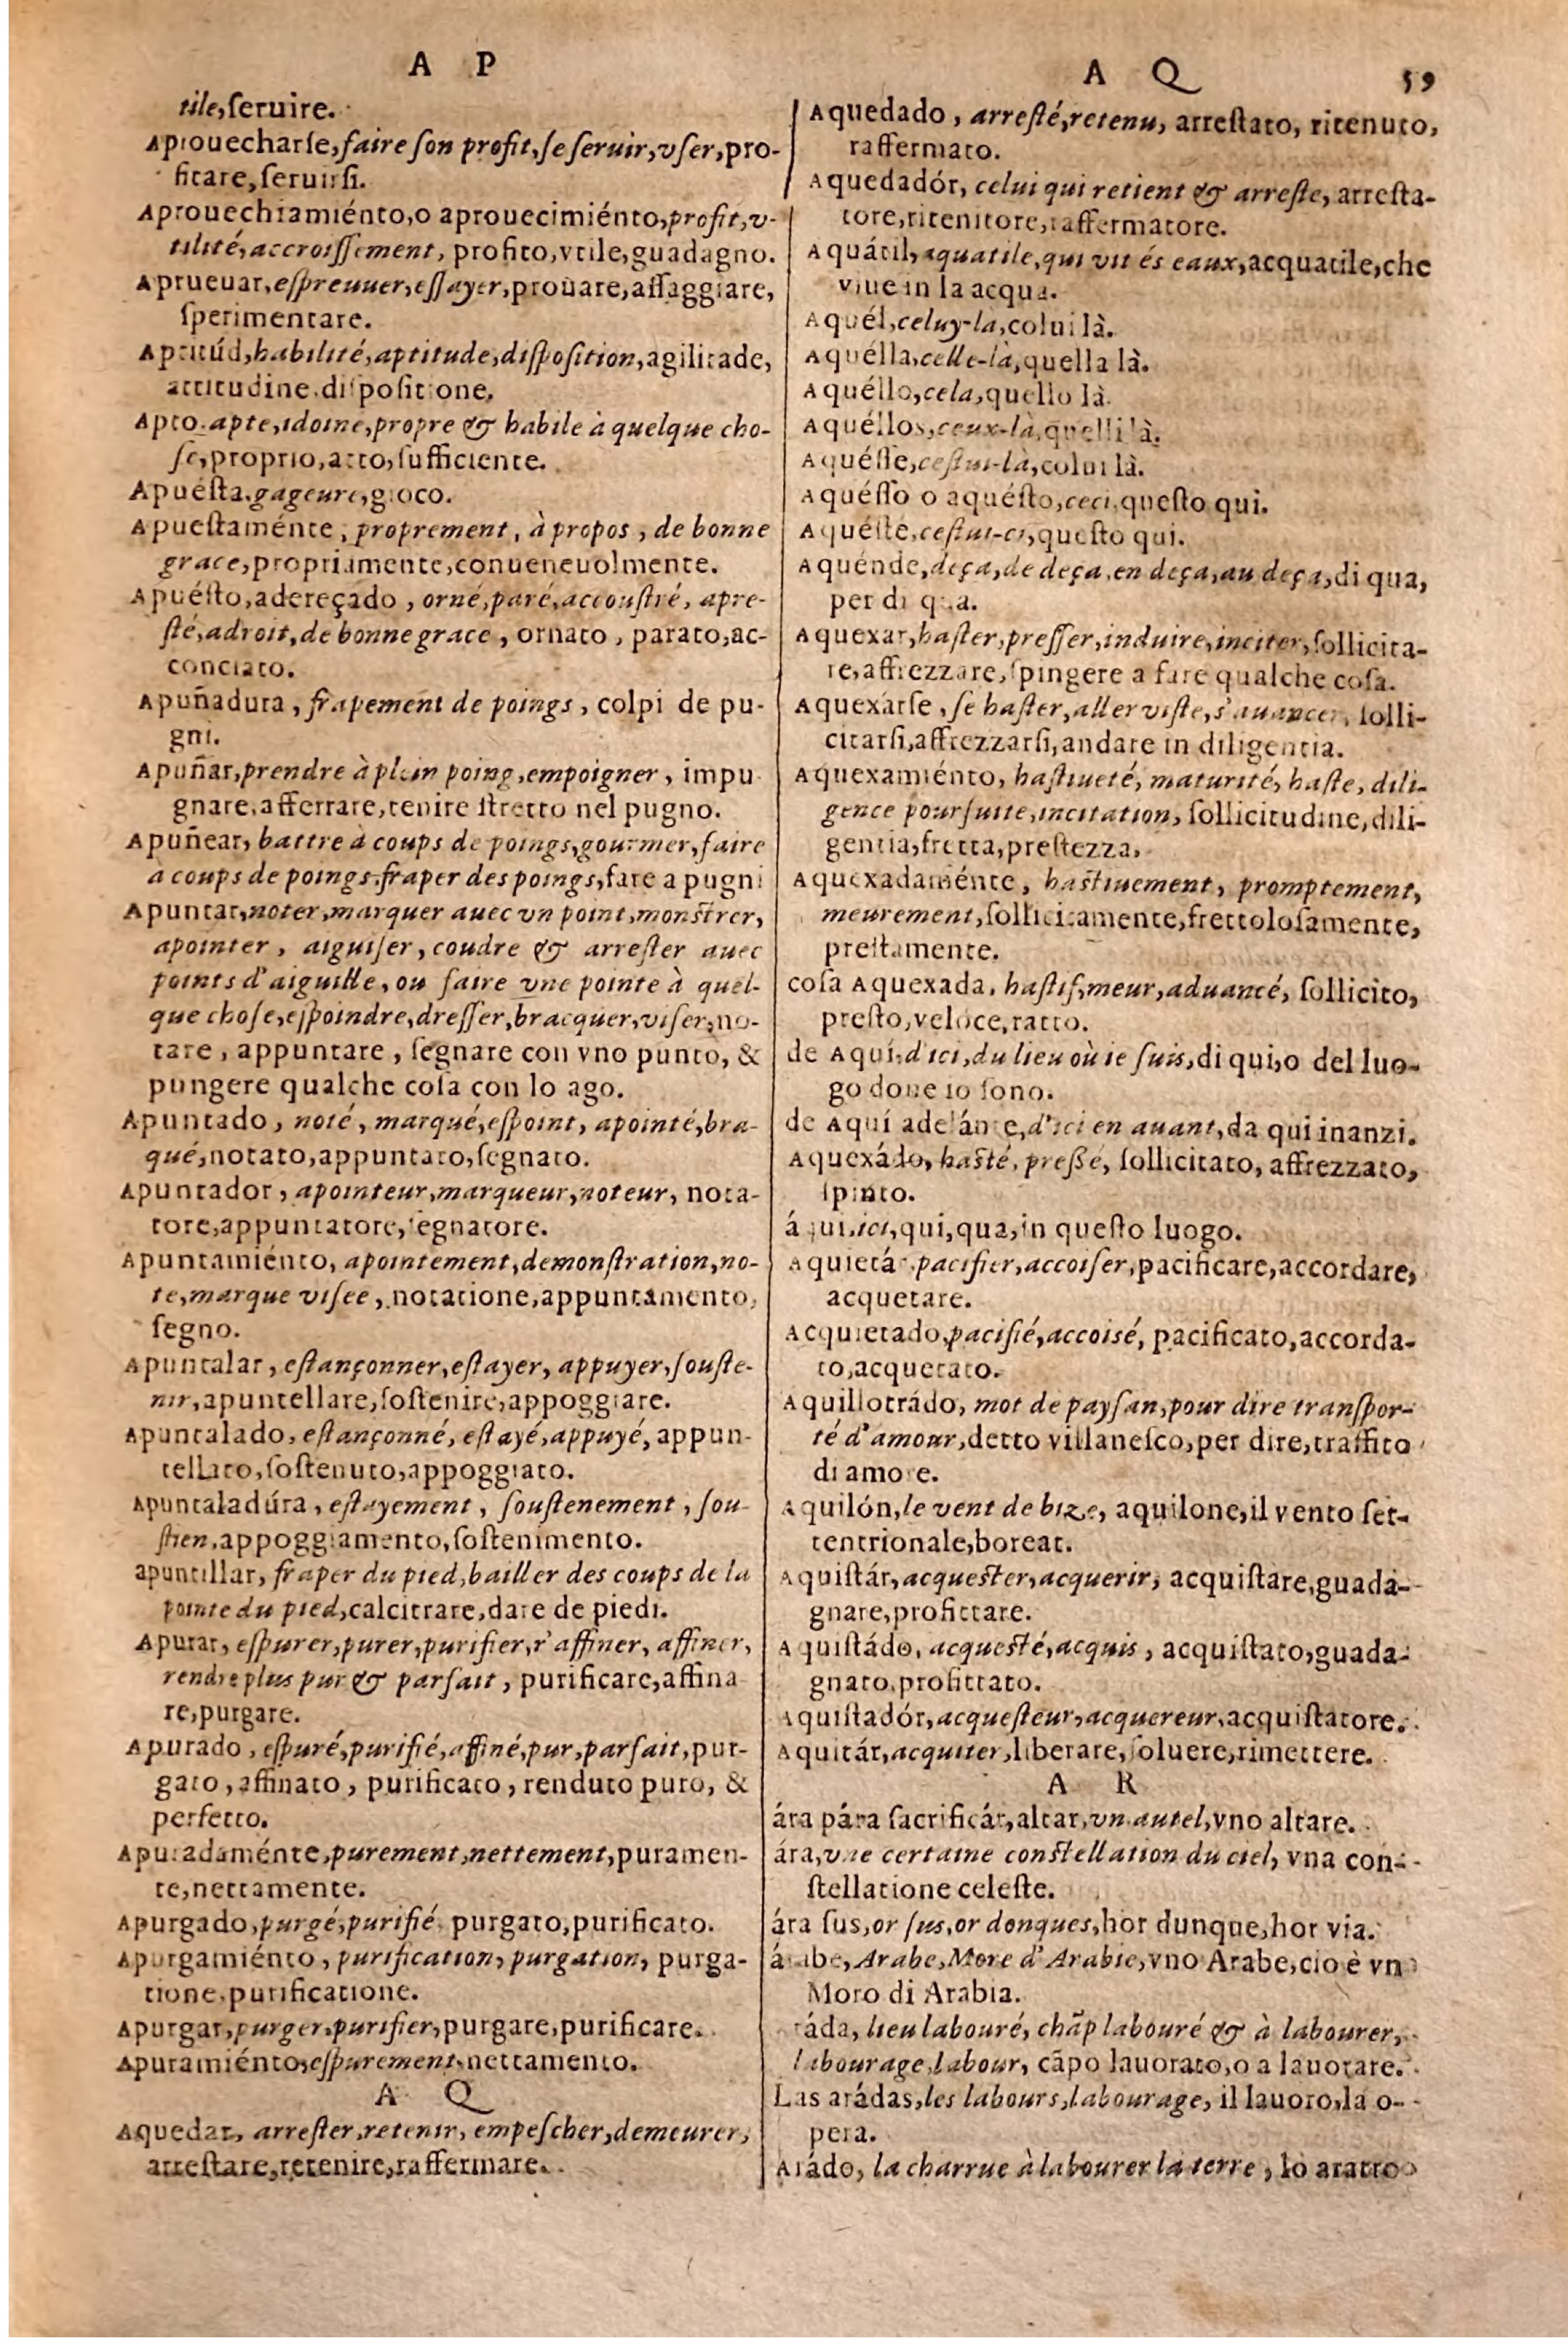 A P
tile, ſeruire.
Aprouecharſe, faire ſon profit, ſe ſeruir, vſer, pro-
ficare, ſeruirſi.
Aprouechiamiénto, o aprouecimiénto, profit, v-
tilité, accroiſſement, profito, vtile, guadagno.
Aprueuar, eſpreuuer, eſſayer, prouare, aſſaggiare,
ſperimentare.
Aptitúd, habilité, aptitude, diſpoſition, agilitade,
attitudine. diſpoſitione,
Apto. apte, idoine, propre & habile à quelque cho-
ſe, proprio, atto, ſufficiente.
Apuéſta, gageure, gioco.
Apueſtaménte, proprement, à propos, de bonne
grace, propriamente, conueneuolmente.
Apuéſto, adereçado, orné, paré, accouſtré, apre-
ſté, adroit, de bonne grace, ornato, parato, ac-
conciato.
Apuñadura, frapement de poings, colpi de pu-
gni.
Apuñar, prendre à plein poing, empoigner, impu
gnare, afferrare, tenire ſtretto nel pugno.
Apuñear, battre à coups de poings, gourmer, faire
a coups de poings, fraper des poings, fare a pugni
Apuntar, noter, marquer auec vn point, monſtrer,
apointer, aiguiſer, coudre & arreſter auec
points d'aiguille, ou faire vne pointe à quel-
que choſe, eſpoindre, dreſſer, bracquer, viſer, no-
tare, appuntare, ſegnare con vno punto, &
pungere qualche coſa con lo ago.
Apuntado, noté, marqué, eſpoint, apointé, bra-
qué, notato, appuntato, ſegnato.
Apuntador, apointeur, marqueur, noteur, nota-
tore, appuntatore, ſegnatore.
Apuntamiénto, apointement, demonſtration, no-
te, marque viſee, notatione, appuntamento,
ſegno.
Apuntalar, eſtançonner, eſtayer, appuyer, ſouſte-
nir, apuntellare, ſoſtenire, appoggiare.
Apuntalado, eſtançonné, eſtayé, appuyé, appun-
tellato, ſoſtenuto, appoggiato.
Apuntaladúra, eſtayement, ſouſtenement, ſou-
ſtien, appoggiamento, ſoſtenimento.
apuntillar, fraper du pied, bailler des coups de la
pointe du pied, calcitrare, dare de piedi.
Apurar, eſpurer, purer, purifier, r'affiner, affiner,
rendre plus pur & parfait, purificare, affina
re, purgare.
Apurado, eſpuré, purifié, affiné, pur, parfait, pur-
gato, affinato, purificato, renduto puro, &
perfetto.
Apuradaménte, purement, nettement, puramen-
te, nettamente.
Apurgado, purgé, purifié purgato, purificato.
Apurgamiénto, purification, purgation, purga-
tione, purificatione.
Apurgar, purger, purifier, purgare, purificare.
Apuramiénto, eſpurement, nettamento.
A Q
Aquedar, arreſter, retenir, empeſcher, demeurer,
arreſtare, retenire, raffermare.
A Q 59
Aquedado, arreſté, retenu, arreſtato, ritenuto,
raffermato.
Aquedadór, celui qui retient & arreſte, arreſta-
tore, ritenitore, raffermatore.
Aquátil, aquatile, qui vit és eaux, acquatile, che
viue in la acqua.
Aquél, celuy-la, colui là.
Aquélla, celle-là, quella là.
Aquéllo, cela, quello là.
Aquéllos, ceux-là, quelli là.
Aquéſſe, ceſtui-là, colui là.
Aquéſſo o aquéſto, ceci, queſto qui.
Aquéſte, ceſtui-ci, queſto qui.
Aquénde, deça, de deça, en deça, au deça, di qua,
per di qua.
Aquexar, haſter, preſſer, induire, inciter, ſollicita-
re, affrezzare, ſpingere a fare qualche coſa.
Aquexarſe, ſe haſter, aller viſte, s'auancer, ſolli-
citarſi, affrezzarſi, andare in diligentia.
Aquexamiénto, haſtiueté, maturité, haſte, dili-
gence pourſuite, incitation, ſollicitudine, dili-
gentia, fretta, preſtezza,
Aquexadaménte, haſtiuement, promptement,
meurement, ſollicitamente, frettoloſamente,
preſtamente.
coſa Aquexada, haſtif, meur, aduancé, ſollicito,
preſto, veloce, ratto.
de Aquí, d'ici, du lieu où ie ſuis, di qui, o del luo-
go doue io ſono.
de Aquí adelánte, d'ici en auant, da qui inanzi.
Aquexádo, haſté, preßé, ſollicitato, affrezzato,
ſpinto.
áqui, ici, qui, qua, in queſto luogo.
Aquietár, pacifier, accoiſer, pacificare, accordare,
acquetare.
Acquietado, pacifié, accoisé, pacificato, accorda-
to, acquetato.
Aquillotrádo, mot de payſan, pour dire tranſpor-
té d'amour, detto villaneſco, per dire, traffito
di amore.
Aquilón, le vent de bize, aquilone, il vento ſet-
tentrionale, boreat.
Aquiſtár, acqueſter, acquerir, acquiſtare, guada-
gnare, profittare.
Aquiſtádo, acqueſté, acquis, acquiſtato, guada-
gnato, profittato.
Aquiſtadór, acqueſteur, acquereur, acquiſtatore.
Aquitár, acquiter, liberare, ſoluere, rimettere.
A R
ára pára ſacrificár, altar, vn autel, vno altare.
ára, vne certaine conſtellation du ciel, vna con-
ſtellatione celeſte.
ára ſus, or ſus, or donques, hor dunque, hor via.
árabe, Arabe, More d'Arabie, vno Arabe, cio è vn
Moro di Arabia.
aráda, lieu labouré, chãp labouré & à labourer,
labourage, labour, cãpo lauorato, o a lauorare.
Las arádas, les labours, labourage, il lauoro, la o-
pera.
Arádo, la charrue à labourer la terre, lo aratro